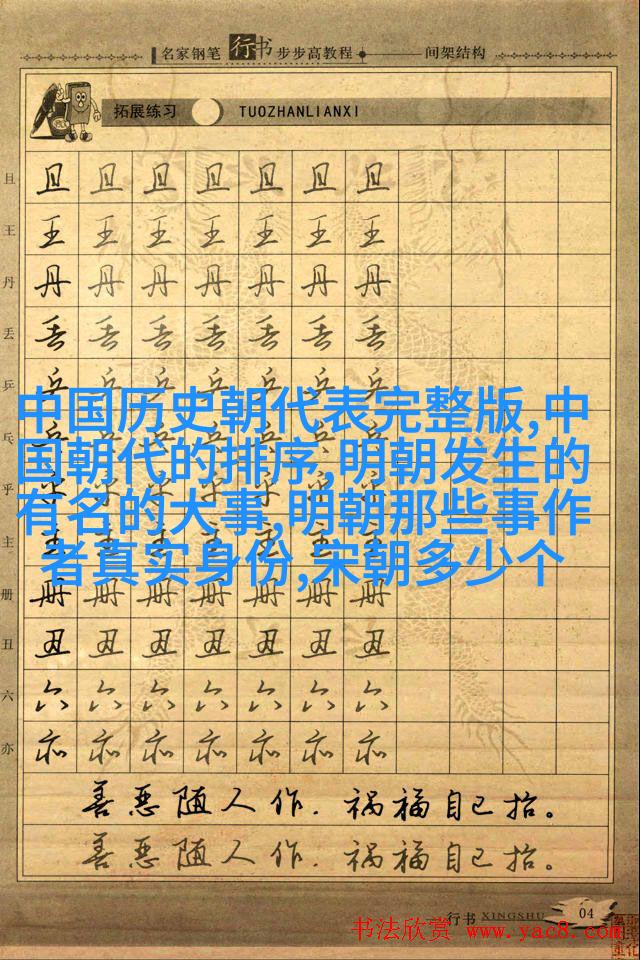 名家钢笔行书步步高教程 间架结构
拓展练习 TUOZHANLIANXI
且 且 且 且 且 且 且 且
王 王 王 王 王 王 王 王
丹 丹 丹 丹 丹 丹 丹 丹
丢 丢 丢 丢 丢 丢 丢 丢
乒 乒 乒 乒 乒 乒 乒 乒
中国历史朝代表完整版,中
乓 乓 乓 乓 乓 乓 乓 乓
国朝代的排序,明朝发生的
乎 乎 乎 乎 乎 乎 乎 乎
有名的大事,明朝那些事作
主 主 主 主 主 主 主 主
者真实身份,宋朝多少个
册 册 册 册 册 册 册 册
丑 丑 丑 丑 丑 丑 丑 丑
六 六 六 六 六 六 六 六
亦 亦 亦 亦 亦 亦 亦 亦
善恶随人作.祸福自己招。
善恶随人作.祸福自己招。
行书 XINGSHU 04
书法欣赏 www.yac8.com